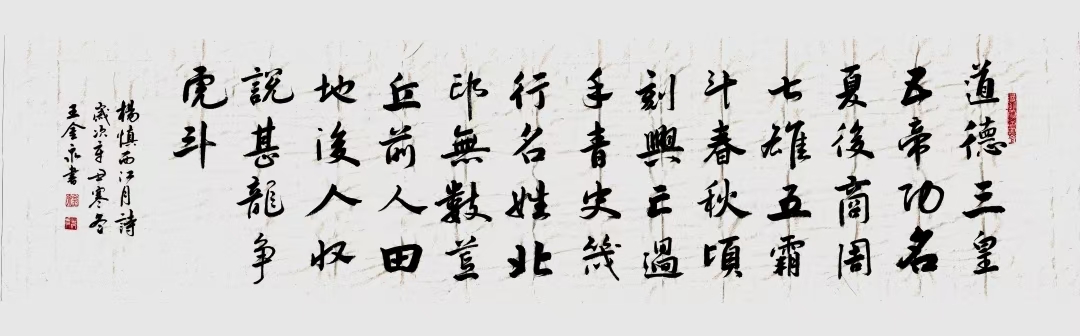 道德三皇
五帝功名
夏後商周
七雄五霸
斗春秋頃
刻興亡過
手青史幾
行名姓北
邙無數荒
丘前人田
地後人收
說甚龍争
虎斗
楊慎西江月詩
歲次辛丑寒冬
王金永書